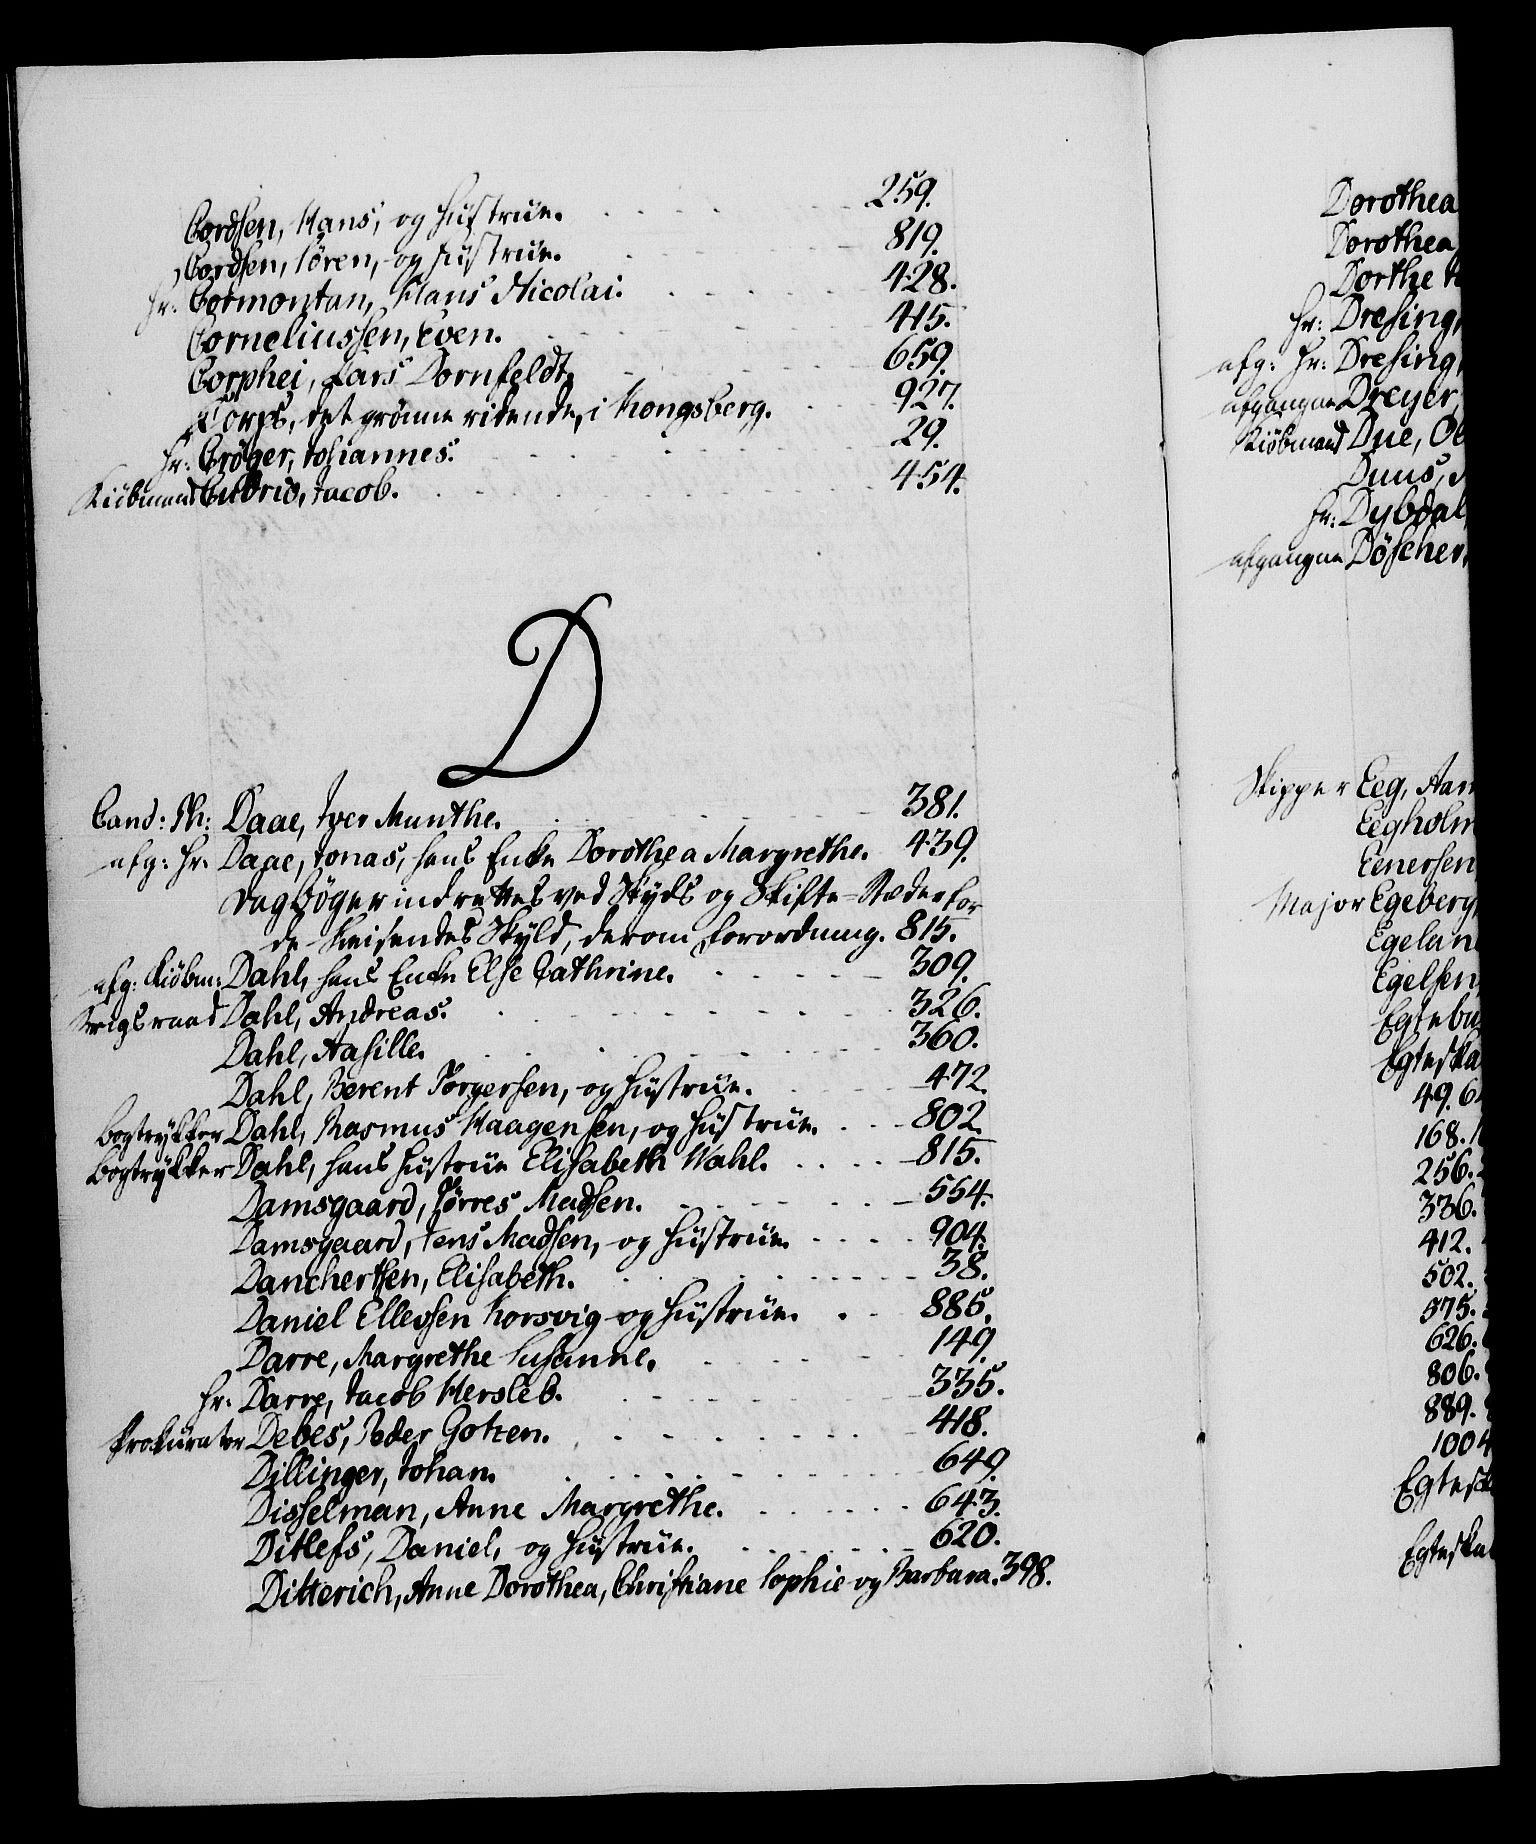 Cordsen, Hans, og Hustrue. 259.
Cordsen, Søren, og Hustrue. 819.
Hr: Cormontan, Hans Nicolai. 428.
Corneliussen, Even. 415.
Corphei, Lars Dornfeldt. 659.
Corps, det grønne ridende, i Kongsberg. 927.
Hr: Crøger, Johannes. 29.
Kiöbmand Cudrio, Jacob. 454.
D
Cand: Ph: Daae, Iver Munthe. 381.
afg: Hr. Daae, Jonas, hans Encke Dorothea Margrethe. 439.
Dagbøger indrettes ved Skyds og Skifte=Stæder for
de Reisendes Skyld, derom Forordning. 815.
afg: Kiöbm: Dahl, hans Encke Else Cathrine. 309.
Krigsraad Dahl, Andreas. 326.
Dahl, Aasille. 360.
Dahl, Berent Jörgersen, og Hustrue. 472.
Bogtrykker Dahl, Rasmus Haagensen, og Hustrue. 802.
Bogtrykker Dahl, hans Hustrue Elisabeth Wahl. 815.
Damsgaard, Jörres Madsen. 554.
Damsgaard, Jens Madsen, og Hustrue. 904.
Danchertsen, Elisabeth. 38.
Daniel Ellevsen Korsvig og Hustrue. 885.
Darre, Margrethe Susanne. 149.
Hr. Darre, Jacob Hersleb. 335.
Prokurator Debes, Peder Gotzen. 418.
Dillinger, Johan. 649.
Disselman, Anne Margrethe. 643.
Ditlefs, Daniel, og Hustrue. 620.
Ditterich, Anne Dorothea, Christiane Sophie og Barbara. 398.
Dorothea
Dorothea
Dorthe
Hr: Dresing,
afg: Hr: Dresing,
afgangne Dreyer,
Kiöbmand Due,
Duus,
Hr: Dybdal
afgangne Döscher,
Skipper Eeg,
Eegholm
Eenersen
Major Egeberg,
Egelan
Egelsen,
Egtebu
Egteska
49.
168.
256.
336.
412.
502.
575.
626.
806.
889.
1004
Egtesk
Egteska